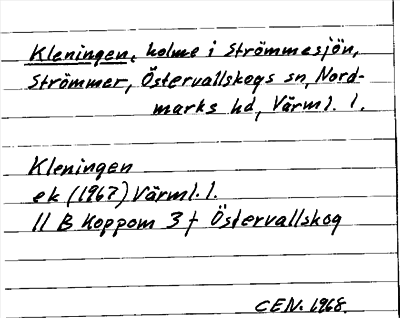 Kleningen, holme i Strömmesjön,
Strömmer, Östervallskogs sn, Nord-
marks hd, Värml. l.
Kleningen
ek (1967) Värml. l.
11 B Koppom 3 f Östervallskog
CEN. 1968.